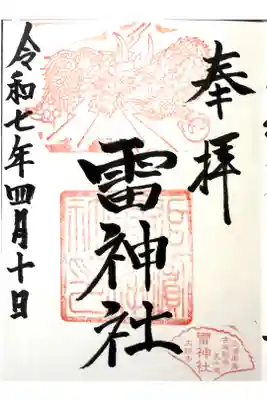 奉拝
雷神社
令和七年四月十日
雷神社